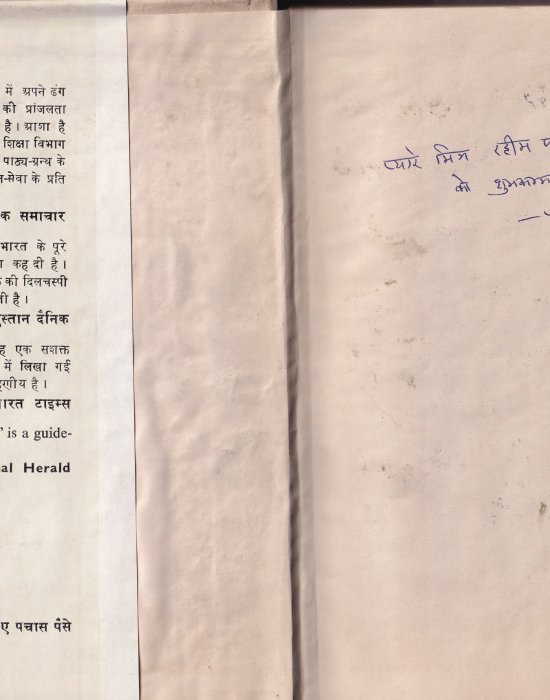 में अपने ढंग
की प्रांजलता
है। आशा है
शिक्षा विभाग
पाठ्य-ग्रन्थ के
-सेवा के प्रति
क समाचार
भारत के पूरे
कह दी है।
की दिलचस्पी
ती है।
स्तान दैनिक
ह एक सशक्त
में लिखा गई
है।
ारत टाइम्स
' is a guide-
al Herald
ए पचास पैसे
प्यारे मित्र रहीम
को